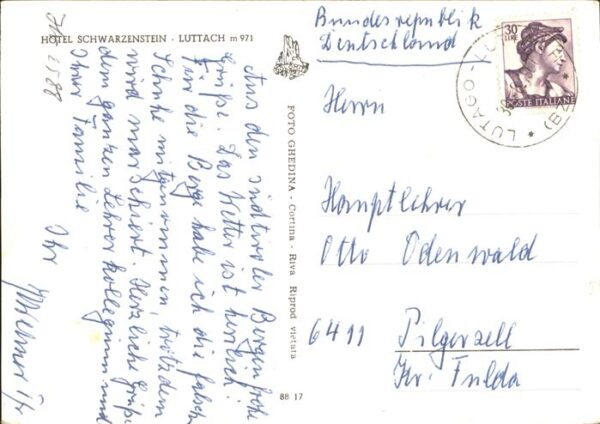 HOTEL SCHWARZENSTEIN - LUTTACH m 971
Aus den südtiroler Bergen frohe
Grüße. Das Wetter ist herrlich!
Für die Berge habe ich die falschen
Schuhe mitgenommen, trotzdem
wird marschiert. Herzliche Grüße
dem ganzen Lehrerkollegium und
Ihrer Familie
Ihr
FOTO GHEDINA - Cortina - Riva Riprod vietata
88 17
Bundesrepublik
Deutschland
30
LIRE
POSTE ITALIANE
LUTAGO
(BZ)
Herrn
Hauptlehrer
Otto Odenwald
6411 Pilgerzell
Kr. Fulda